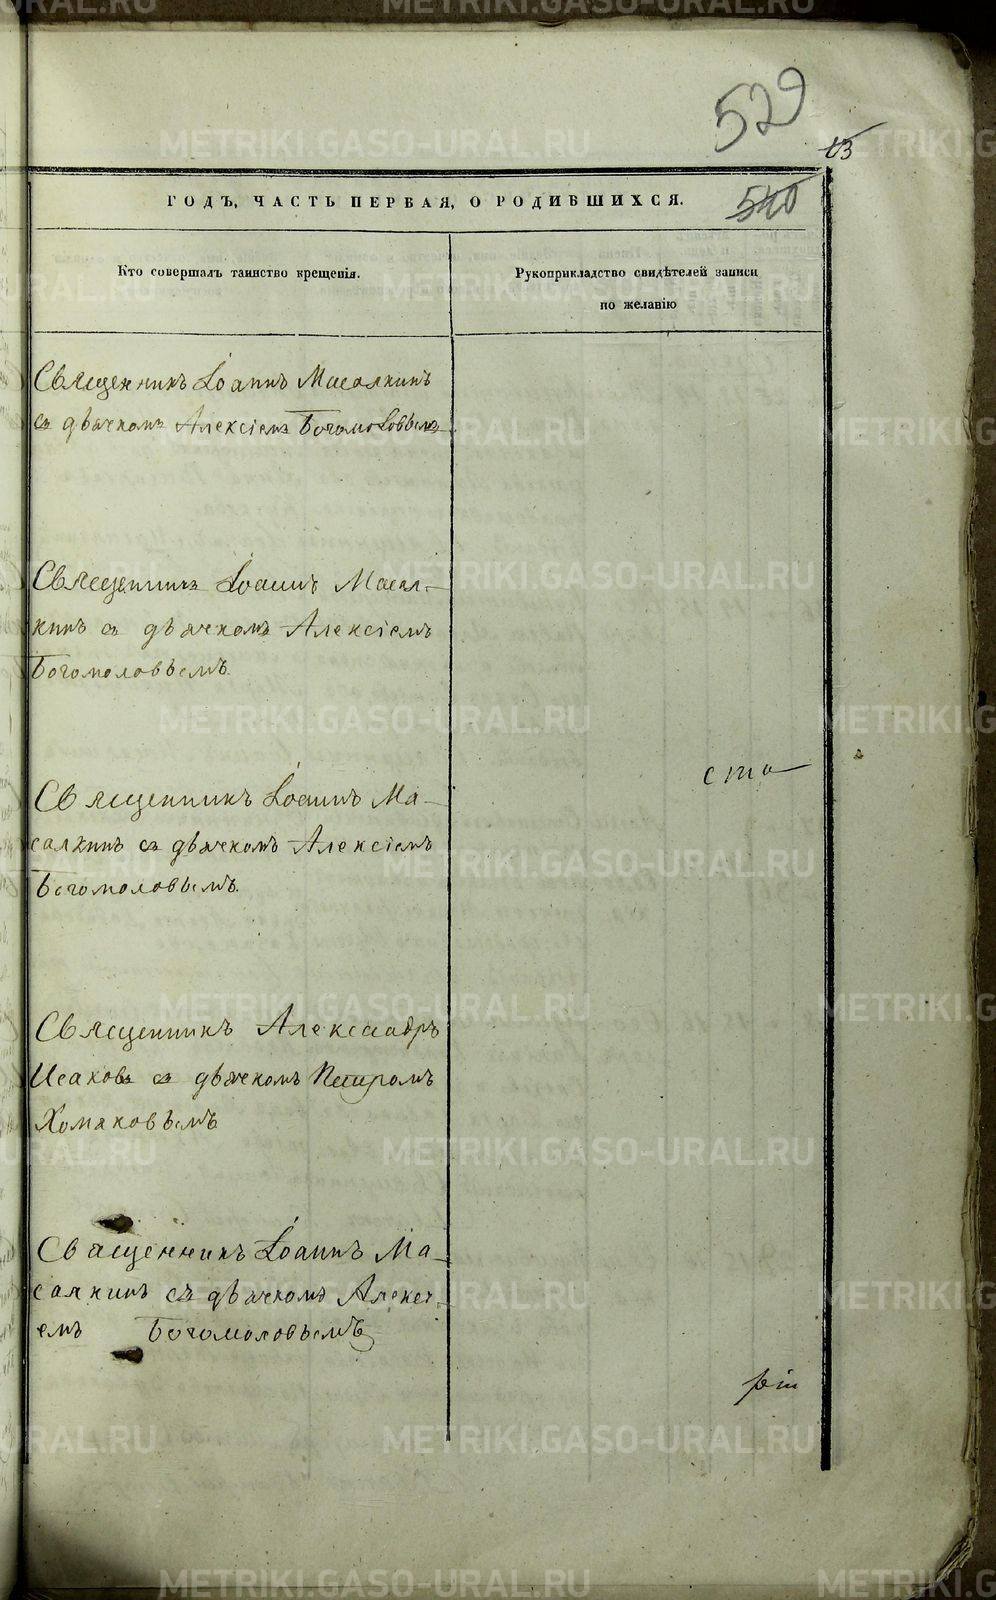 529
13
ГОДЪ, ЧАСТЬ ПЕРВАЯ, О РОДИВШИХСЯ.
540
Кто совершалъ таинство крещенія.
Рукоприкладство свидѣтелей записи
по желанію
Священникъ Іоаннъ Масалкинъ
съ дьячкомъ Алексіемъ Богомоловымъ
Священникъ Іоаннъ Масал-
кинъ съ дьячкомъ Алексіемъ
Богомоловымъ.
ста
Священникъ Іоаннъ Ма-
салкинъ съ дьячкомъ Алексіемъ
Богомоловымъ.
Священникъ Александръ
Исаковъ съ дьячкомъ Петромъ
Хомяковымъ
Священникъ Іоаннъ Ма-
салкинъ съ дьячкомъ Алексі-
емъ Богомоловымъ
METRIKI.GASO-URAL.RU